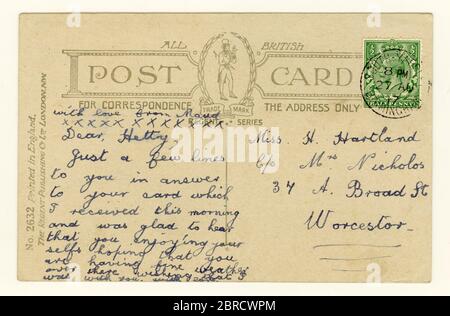 ALL BRITISH
POST CARD
FOR CORRESPONDENCE THE ADDRESS ONLY
TRADE MARK
REGENT SERIES
with love from Maud
x x x x x x x x x x x x
Dear Hetty,
Just a few lines
to you in answer
to your card which
I received this morning
and was glad to hear
that you enjoying your
selfs hoping that you
are having fine weather
over there wishing that I
was with you. with
Miss H. Hartland
c/o Mrs Nicholos
34 A. Broad St
Worcestor.
8 PM
27 AU
No. 2632 Printed in England.
The Regent Publishing Co Ld London NN
alamy
Image ID: 2BRCWPM
www.alamy.com